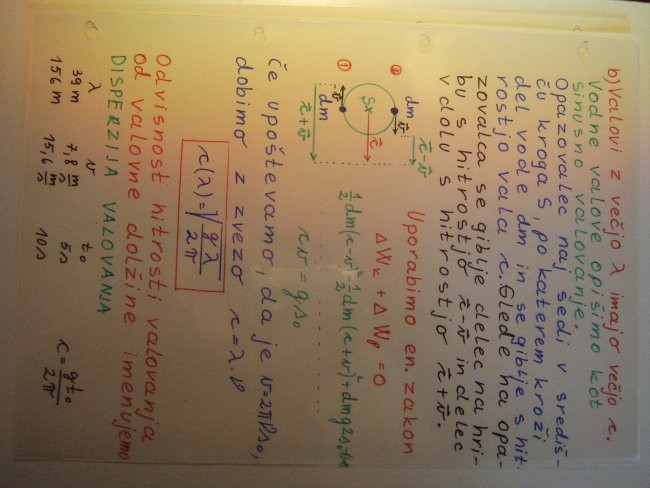 b) Valovi z večjo λ imajo večjo c.
Vodne valove opišimo kot
sinusno valovanje.
Opazovalec naj sedi v središ-
ču kroga S, po katerem kroži
del vode dm in se giblje s hit-
rostjo vala c. Glede na opa-
zovalca se giblje delec na hri-
bu s hitrostjo c⃗-v⃗ in delec
v dolu s hitrostjo c⃗+v⃗.
② dm c⃗-v⃗
v⃗
S c⃗
① -v⃗ dm c⃗+v⃗
Uporabimo en. zakon
ΔWk + ΔWp = 0
½dm(c-v)²-½dm(c+v)²+dmg2s₀=0
cv = gs₀
Če upoštevamo, da je v=2πνs₀,
dobimo z zvezo c=λ.ν
c(λ)=√(gλ/2π)
Odvisnost hitrosti valovanja
od valovne dolžine imenujemo
DISPERZIJA VALOVANJA
λ v t₀ c = gt₀/2π
39m 7,8 m/s 5s
156m 15,6 m/s 10s